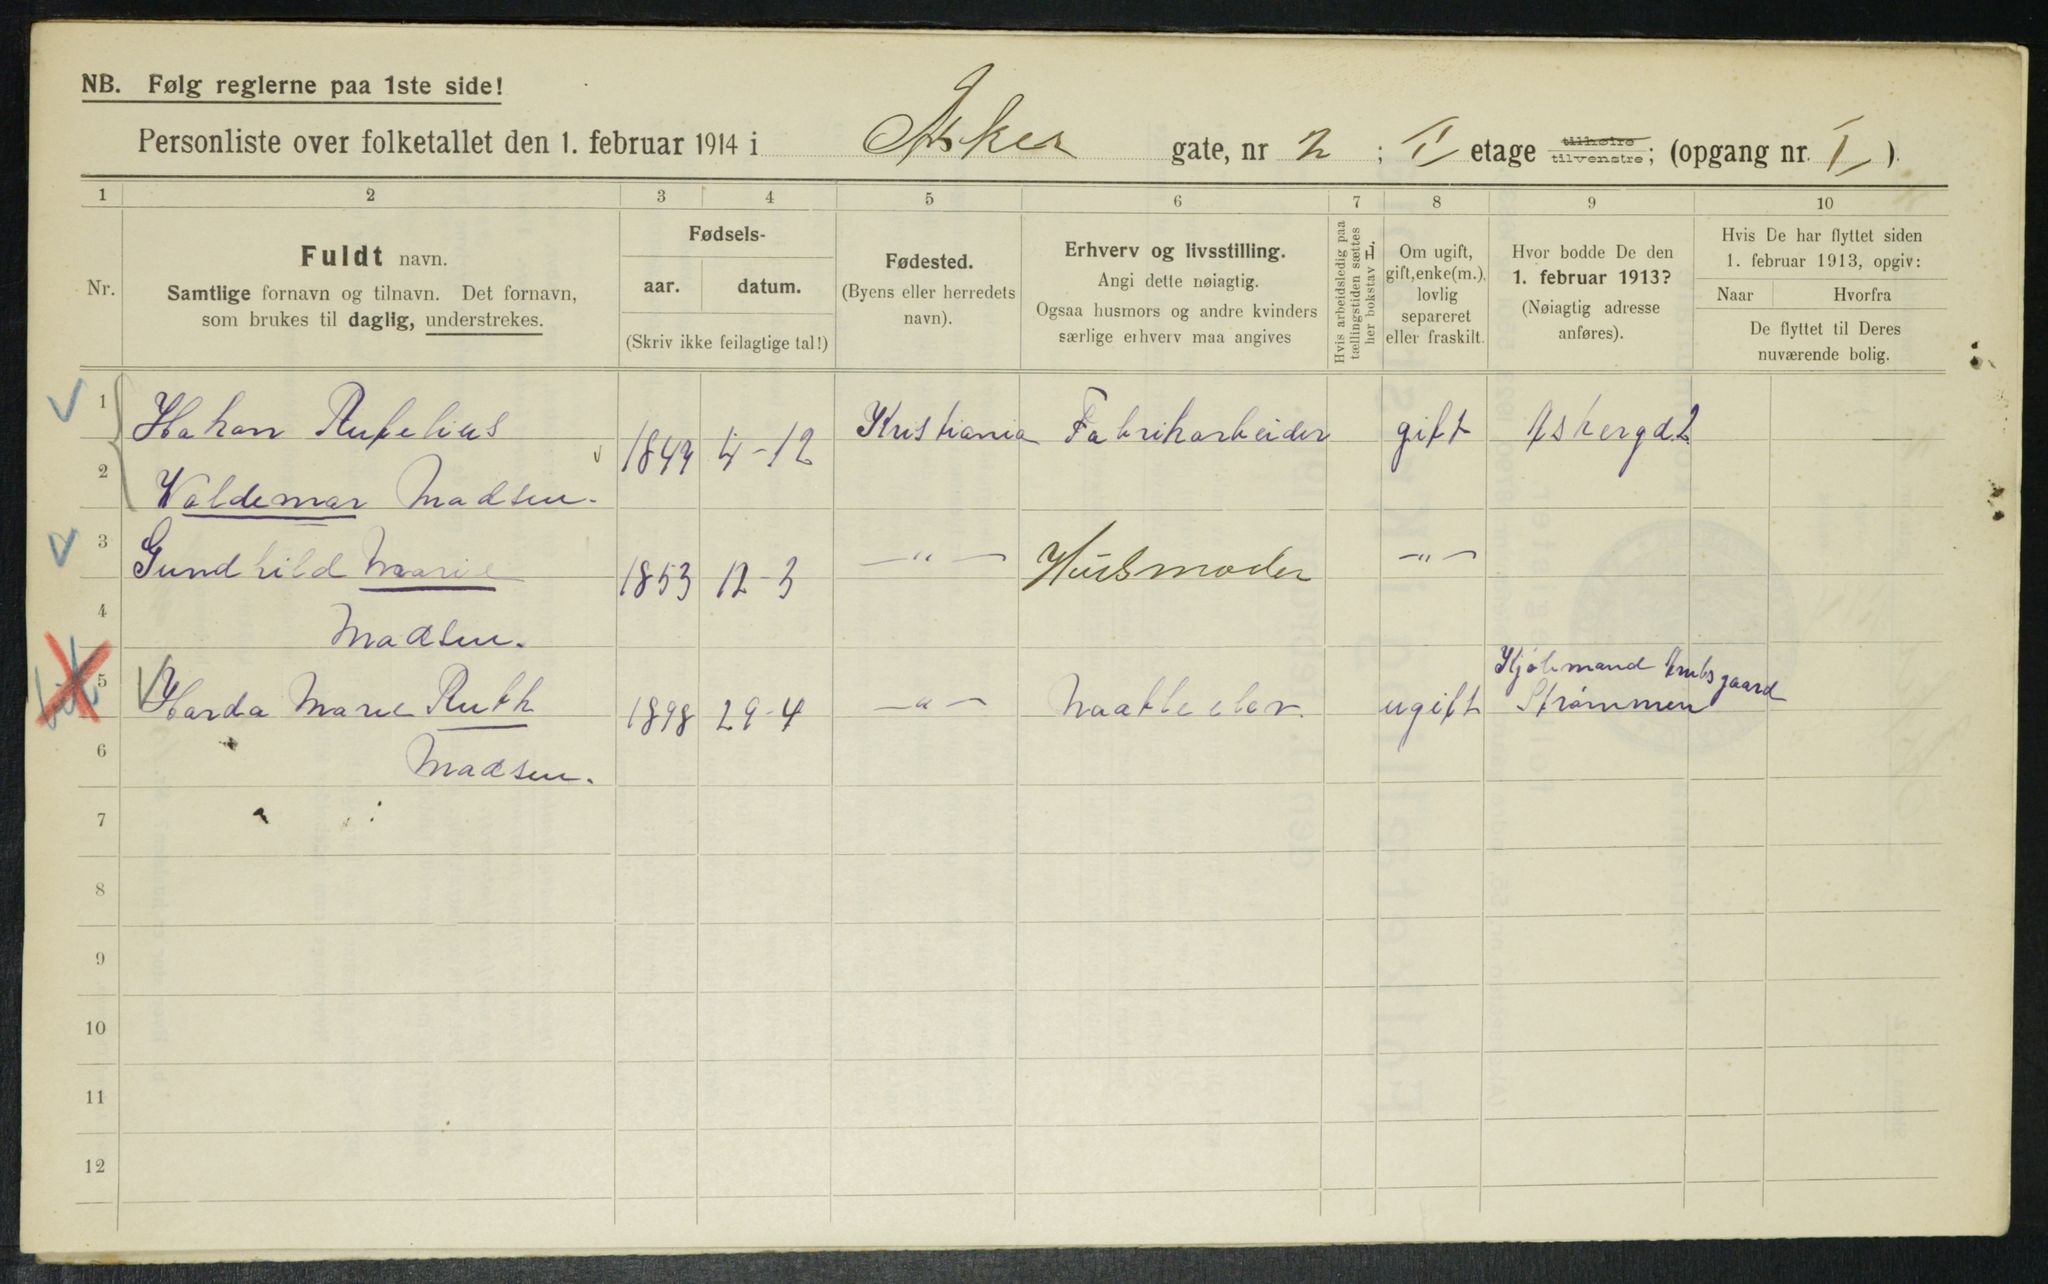 NB. Følg reglerne paa 1ste side!
Personliste over folketallet den 1. februar 1914 i Asker gate, nr 2 ; II etage tilhøire tilvenstre; (opgang nr. I ).
1 2 3 4 5 6 7 8 9 10
Nr.
Fuldt navn.
Samtlige fornavn og tilnavn. Det fornavn,
som brukes til daglig, understrekes.
Fødsels-
aar. datum.
(Skriv ikke feilagtige tal!)
Fødested.
(Byens eller herredets
navn).
Erhverv og livsstilling.
Angi dette nøiagtig.
Ogsaa husmors og andre kvinders
særlige erhverv maa angives
Hvis arbeidsledig paa
tællingstiden sættes
her bokstav L.
Om ugift,
gift, enke(m.),
lovlig
separeret
eller fraskilt.
Hvor bodde De den
1. februar 1913?
(Nøiagtig adresse
anføres).
Hvis De har flyttet siden
1. februar 1913, opgiv:
Naar Hvorfra
De flyttet til Deres
nuværende bolig.
1 Hakan
2 Valdemar Madsen. 4-12 Kristiania Fabrikarbeider gift Askergd. 2
3 Gundhild Marie 1853 12-3 —"— Husmoder —"—
4 Madsen.
5 Marie Ruth 1898 29-4 —"— ugift Strømmen
6 Madsen.
7
8
9
10
11
12